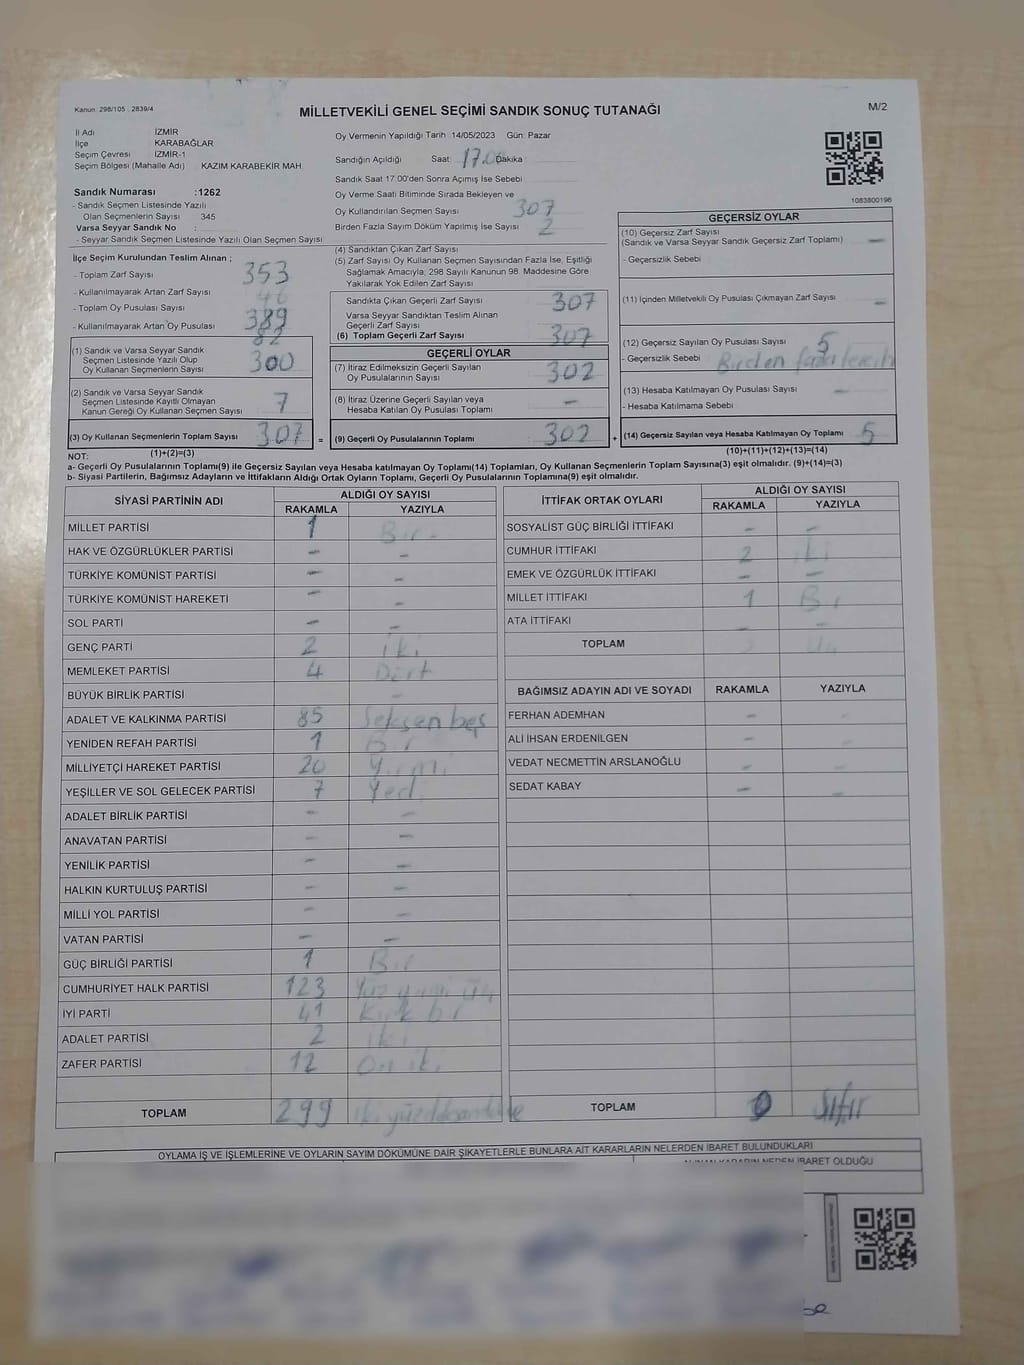 Kanun: 298/105 , 2839/4
MİLLETVEKİLİ GENEL SEÇİMİ SANDIK SONUÇ TUTANAĞI
M/2
İl Adı İZMİR
İlçe KARABAĞLAR
Seçim Çevresi İZMİR-1
Seçim Bölgesi (Mahalle Adı) KAZIM KARABEKİR MAH.
Sandık Numarası :1262
- Sandık Seçmen Listesinde Yazılı
Olan Seçmenlerin Sayısı 345
Varsa Seyyar Sandık No :
- Seyyar Sandık Seçmen Listesinde Yazılı Olan Seçmen Sayısı
Oy Vermenin Yapıldığı Tarih 14/05/2023 Gün: Pazar
Sandığın Açıldığı Saat 17.00 Dakika
Sandık Saat 17:00'den Sonra Açımış İse Sebebi
Oy Verme Saati Bitiminde Sırada Bekleyen ve
Oy Kullandırılan Seçmen Sayısı 307
Birden Fazla Sayım Döküm Yapılmış İse Sayısı 2
1083800196
İlçe Seçim Kurulundan Teslim Alınan ;
- Toplam Zarf Sayısı 353
- Kullanılmayarak Artan Zarf Sayısı 46
- Toplam Oy Pusulası Sayısı 389
- Kullanılmayarak Artan Oy Pusulası 82
(1) Sandık ve Varsa Seyyar Sandık
Seçmen Listesinde Yazılı Olup
Oy Kullanan Seçmenlerin Sayısı 300
(2) Sandık ve Varsa Seyyar Sandık
Seçmen Listesinde Kayıtlı Olmayan
Kanun Gereği Oy Kullanan Seçmen Sayısı 7
(3) Oy Kullanan Seçmenlerin Toplam Sayısı 307 =
(1)+(2)=(3)
(4) Sandıktan Çıkan Zarf Sayısı
(5) Zarf Sayısı Oy Kullanan Seçmen Sayısından Fazla İse, Eşitliği
Sağlamak Amacıyla, 298 Sayılı Kanunun 98. Maddesine Göre
Yakılarak Yok Edilen Zarf Sayısı
Sandıkta Çıkan Geçerli Zarf Sayısı 307
Varsa Seyyar Sandıktan Teslim Alınan
Geçerli Zarf Sayısı
(6) Toplam Geçerli Zarf Sayısı 307
GEÇERLİ OYLAR
(7) İtiraz Edilmeksizin Geçerli Sayılan
Oy Pusulalarının Sayısı 302
(8) İtiraz Üzerine Geçerli Sayılan veya
Hesaba Katılan Oy Pusulası Toplamı -
(9) Geçerli Oy Pusulalarının Toplamı 302 +
GEÇERSİZ OYLAR
(10) Geçersiz Zarf Sayısı -
(Sandık ve Varsa Seyyar Sandık Geçersiz Zarf Toplamı)
- Geçersizlik Sebebi
(11) İçinden Milletvekili Oy Pusulası Çıkmayan Zarf Sayısı -
(12) Geçersiz Sayılan Oy Pusulası Sayısı 5
- Geçersizlik Sebebi Birden fazla tercih
(13) Hesaba Katılmayan Oy Pusulası Sayısı -
- Hesaba Katılmama Sebebi
(14) Geçersiz Sayılan veya Hesaba Katılmayan Oy Toplamı 5
(10)+(11)+(12)+(13)=(14)
NOT:
a- Geçerli Oy Pusulalarının Toplamı(9) ile Geçersiz Sayılan veya Hesaba katılmayan Oy Toplamı(14) Toplamları, Oy Kullanan Seçmenlerin Toplam Sayısına(3) eşit olmalıdır. (9)+(14)=(3)
b- Siyasi Partilerin, Bağımsız Adayların ve İttifakların Aldığı Oyların Toplamı, Geçerli Oy Pusulalarının Toplamına(9) eşit olmalıdır.
SİYASİ PARTİNİN ADI ALDIĞI OY SAYISI
RAKAMLA YAZIYLA
MİLLET PARTİSİ 1 Bir
HAK VE ÖZGÜRLÜKLER PARTİSİ - -
TÜRKİYE KOMÜNİST PARTİSİ - -
TÜRKİYE KOMÜNİST HAREKETİ - -
SOL PARTİ - -
GENÇ PARTİ 2 iki
MEMLEKET PARTİSİ 4 Dört
BÜYÜK BİRLİK PARTİSİ -
ADALET VE KALKINMA PARTİSİ 85 Seksen beş
YENİDEN REFAH PARTİSİ 1 Bir
MİLLİYETÇİ HAREKET PARTİSİ 20 Yirmi
YEŞİLLER VE SOL GELECEK PARTİSİ 7 Yedi
ADALET BİRLİK PARTİSİ - -
ANAVATAN PARTİSİ - -
YENİLİK PARTİSİ - -
HALKIN KURTULUŞ PARTİSİ - -
MİLLİ YOL PARTİSİ - -
VATAN PARTİSİ - -
GÜÇ BİRLİĞİ PARTİSİ 1 Bir
CUMHURİYET HALK PARTİSİ 123 Yüz yirmi üç
İYİ PARTİ 41 Kırk bir
ADALET PARTİSİ 2 iki
ZAFER PARTİSİ 12 On iki
TOPLAM 299
İTTİFAK ORTAK OYLARI ALDIĞI OY SAYISI
RAKAMLA YAZIYLA
SOSYALİST GÜÇ BİRLİĞİ İTTİFAKI - -
CUMHUR İTTİFAKI 2 iki
EMEK VE ÖZGÜRLÜK İTTİFAKI - -
MİLLET İTTİFAKI 1 Bir
ATA İTTİFAKI -
TOPLAM 3 Üç
BAĞIMSIZ ADAYIN ADI VE SOYADI RAKAMLA YAZIYLA
FERHAN ADEMHAN - -
ALİ İHSAN ERDENİLGEN - -
VEDAT NECMETTİN ARSLANOĞLU - -
SEDAT KABAY - -
TOPLAM 0 Sıfır
OYLAMA İŞ VE İŞLEMLERİNE VE OYLARIN SAYIM DÖKÜMÜNE DAİR ŞİKAYETLERLE BUNLARA AİT KARARLARIN NELERDEN İBARET BULUNDUKLARI
ALINAN KARARIN NEDEN İBARET OLDUĞU